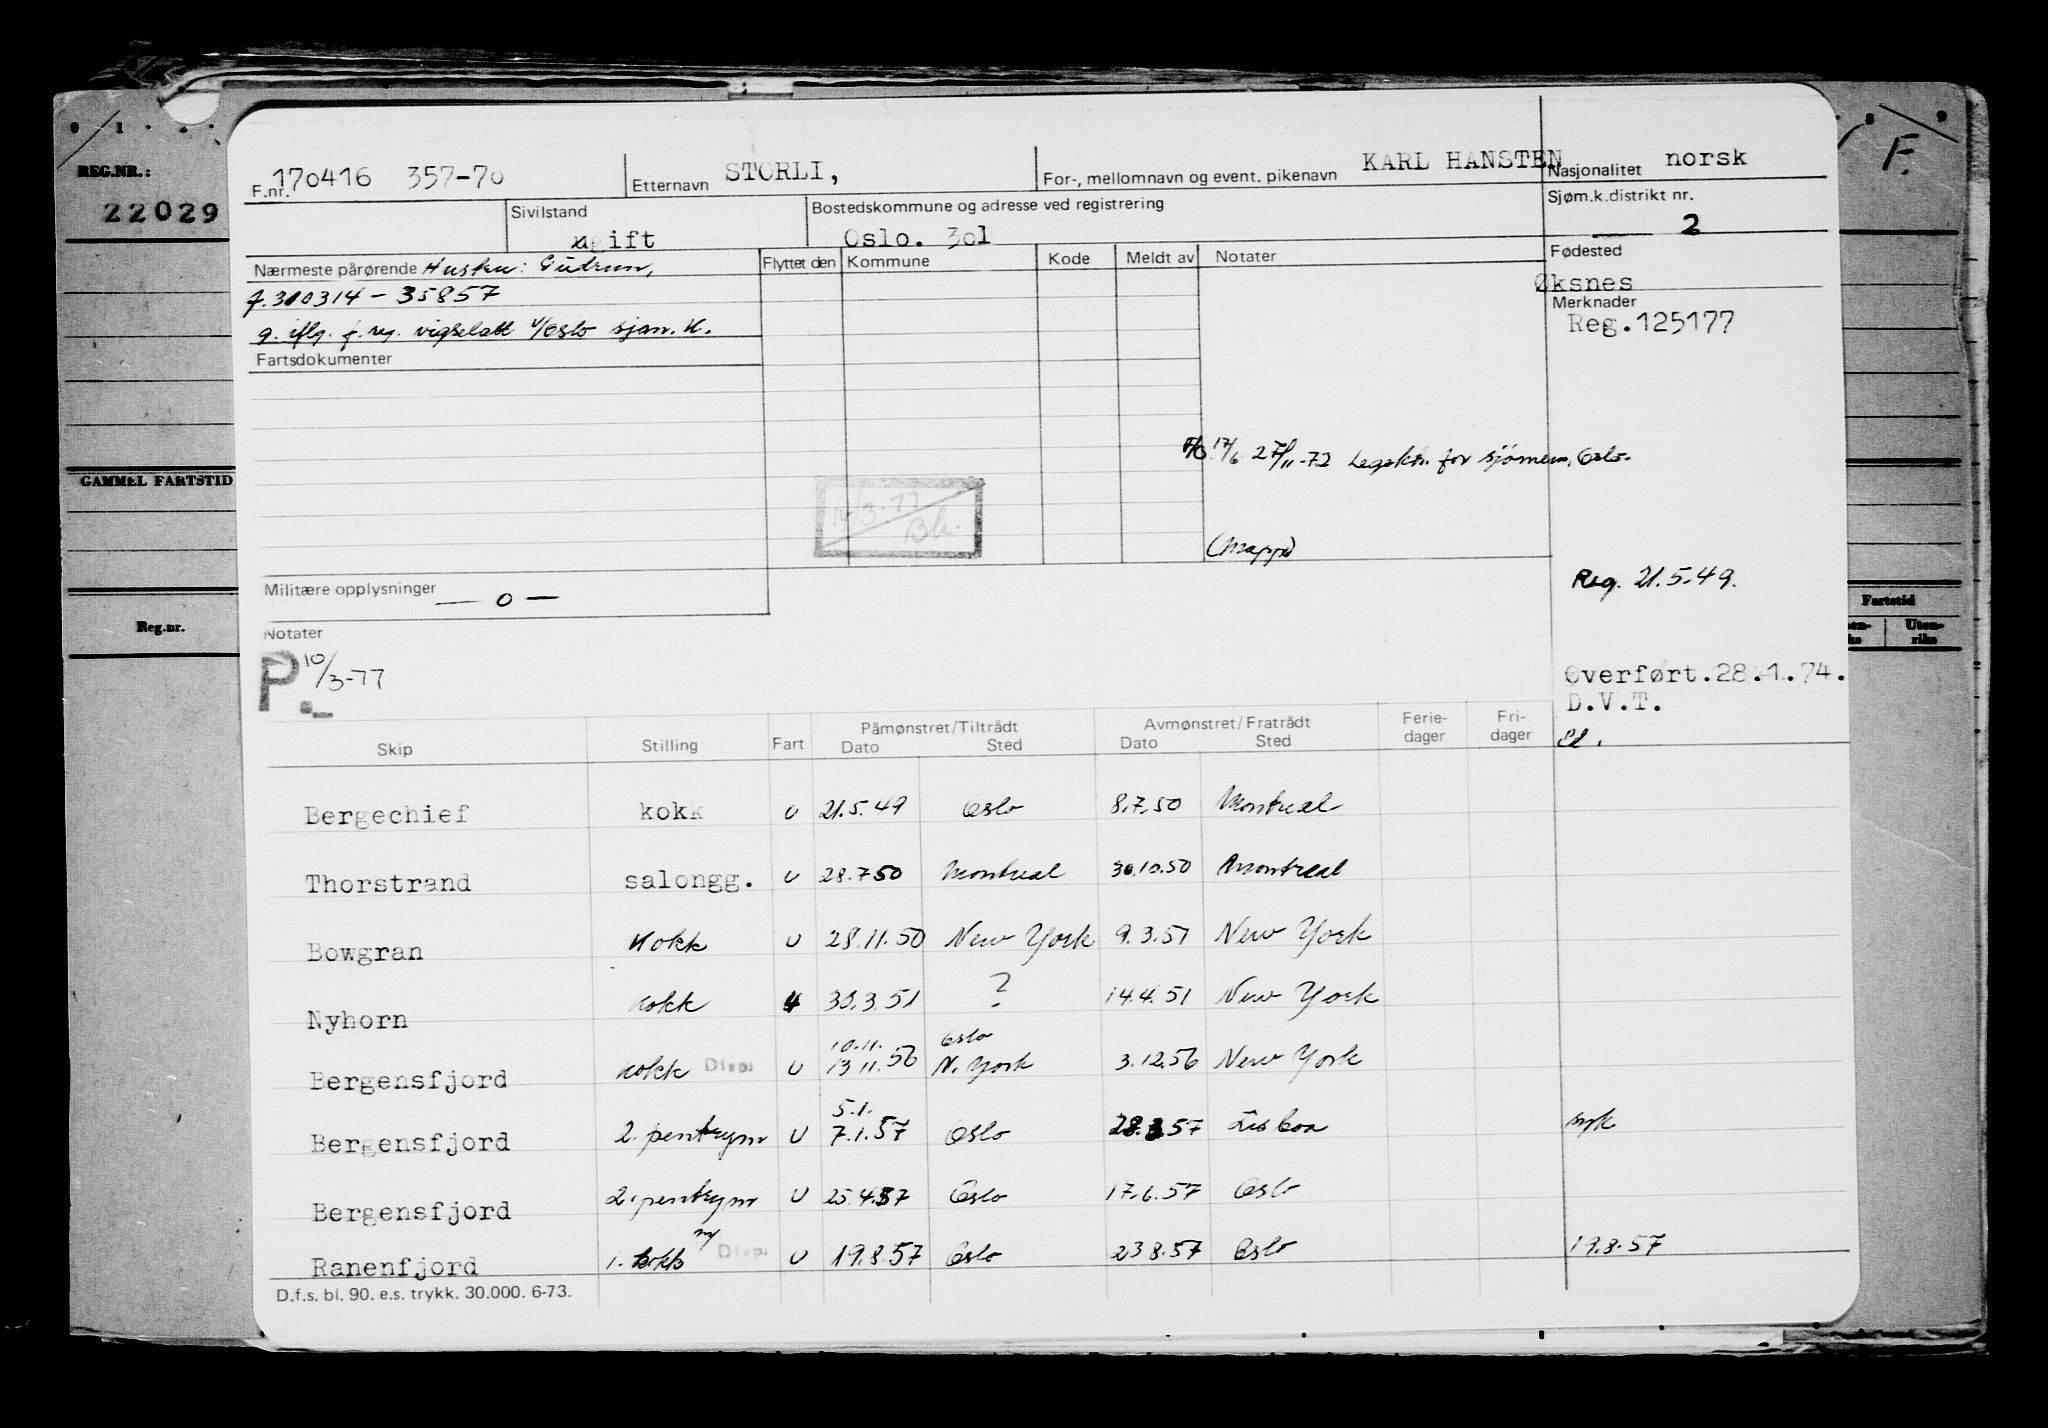 REG.NR.:
22029
GAMMEL FARTSTID
Reg.nr.
F.
Fartstid
Uten-
riks
F.nr. 170416 357-70
Etternavn STORLI,
For-, mellomnavn og event. pikenavn KARL HANSTEN
Nasjonalitet norsk
Sivilstand
gift
Bostedskommune og adresse ved registrering
Oslo. 301
Sjøm.k.distrikt nr.
2
Nærmeste pårørende Hustru: Gudrun,
f. 310314 - 35857
g. iflg. f. reg. vigselatt v/Oslo sjøm. k.
Flyttet den Kommune Kode Meldt av Notater
Fødested
Øksnes
Merknader
Reg.125177
Fartsdokumenter
17/6 27/11-72 Legektr. for sjømenn, Oslo.
14/3-77
Bh.
(mappe)
Militære opplysninger — o —
Reg. 21.5.49.
Notater
P. 10/3-77
Overført.28.1.74.
D.V.T.
Skip Stilling Fart Påmønstret/Tiltrådt Dato Sted Avmønstret/Fratrådt Dato Sted Ferie-dager Fri-dager
Bergechief kokk U 21.5.49 Oslo 8.7.50 Montreal
Thorstrand salongg. U 28.7.50 Montreal 30.10.50 Montreal
Bowgran Kokk U 28.11.50 New York 9.3.51 New York
Nyhorn Kokk 30.3.51 ? 14.4.51 New York
10.11. Oslo
Bergensfjord Kokk Disp. U 13.11.56 N. York 3.12.56 New York
5.1.
Bergensfjord 2. pentrym U 7.1.57 Oslo 28.3.57 Lisboa syk
Bergensfjord 2. pentrym U 25.4.57 Oslo 17.6.57 Oslo
Ranenfjord 1. kokk Disp. U 19.8.57 Oslo 23.8.57 Oslo 19.8.57
D.f.s. bl. 90. e.s. trykk. 30.000. 6-73.